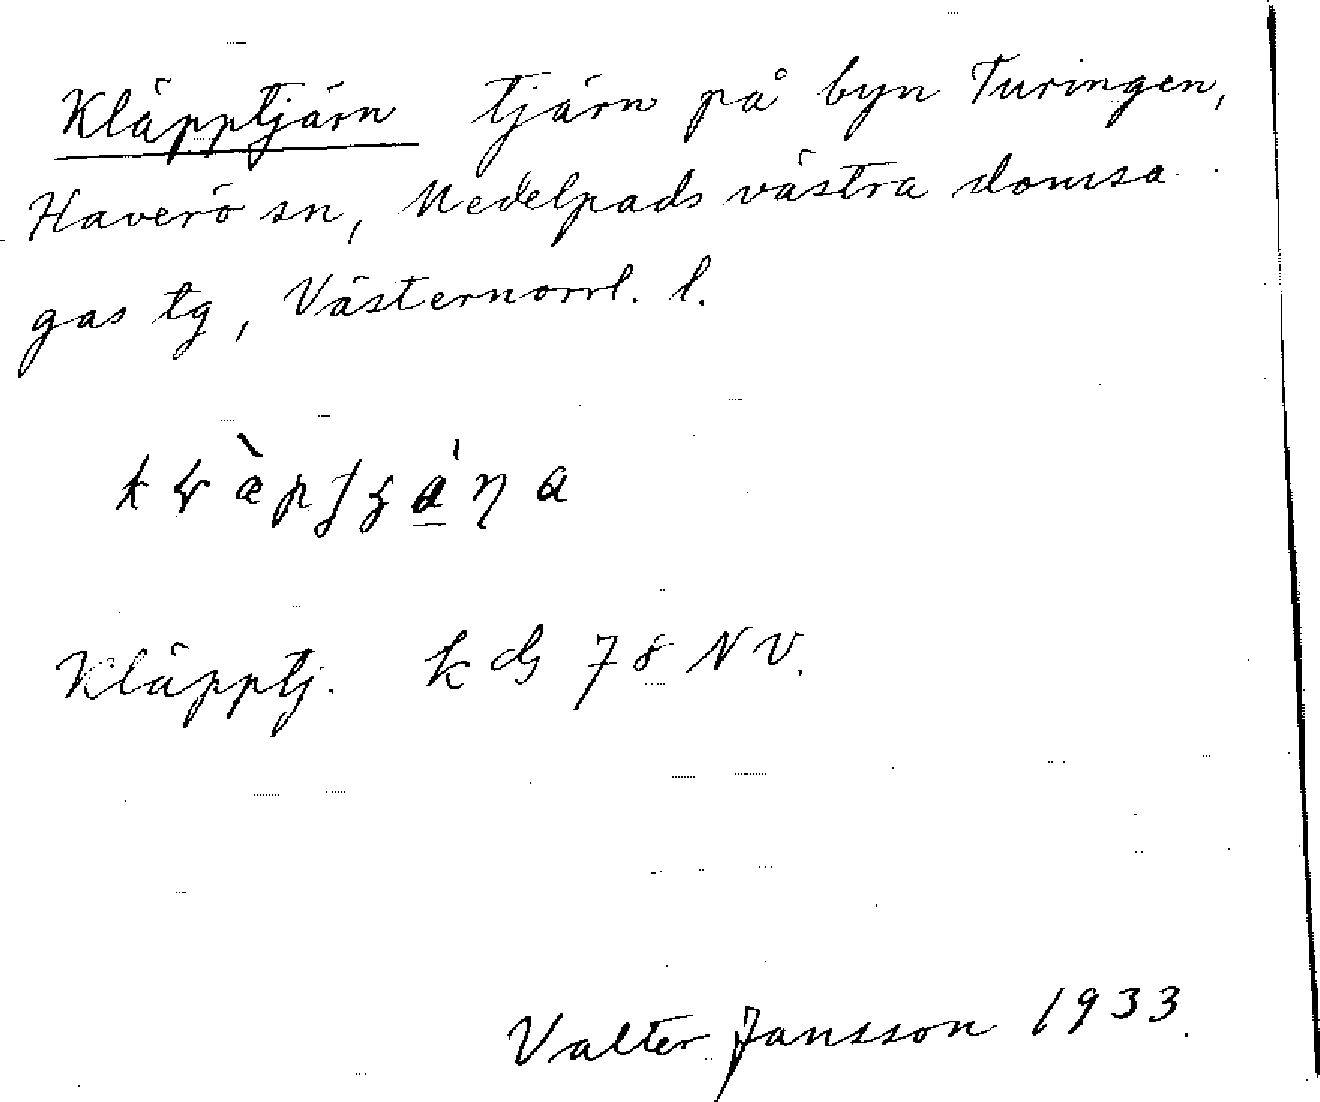 Kläpptjärn tjärn på byn Turingen,
Haverö sn, Medelpads västra domsa
gas tg, Västernorrl. l.
Kläpptj. k dg 78 NV.
Valter Jansson 1933.